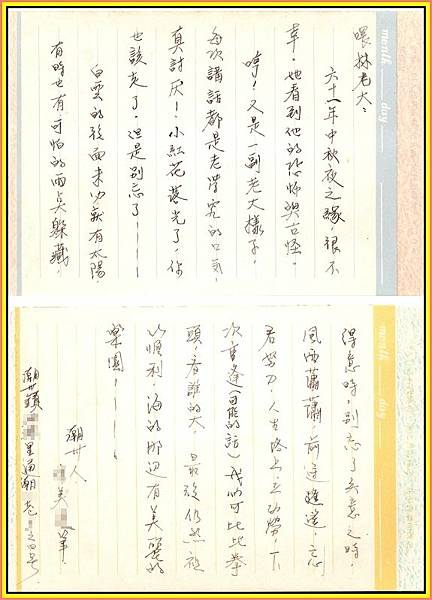 month day
喂林老大：
六十一年中秋夜之緣，很不
幸，她看到他的恐怖與古怪。
哼！又是一副老大樣子，
每次講話都是老學究的口氣，
真討厌！小紅花落光了，你
也該走了，但是別忘了————
白雲的後面未必就有太陽，
有時也有可怕的雨点躲藏。
month day
得意時，別忘了失意之時，
風雨蕭蕭前途遙遙，忘
君努力，人生路上立功勞，下
次重逢（可能的話）我们可比比拳
頭，看誰的大。最後仍然祝
以順利，海的那边有美麗的
樂園！————
潮廾人
美 筆。
潮廾鎮 里通潮巷 之四号